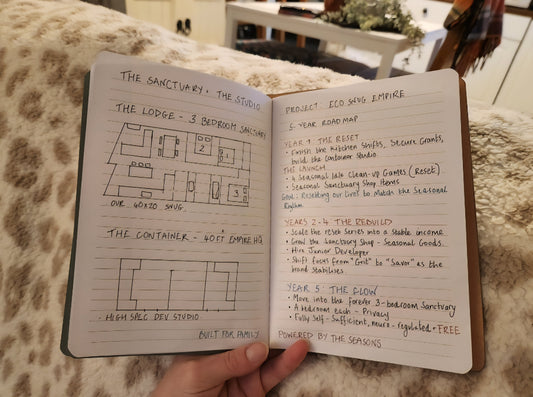 THE SANCTUARY + THE STUDIO
THE LODGE - 3 BEDROOM SANCTUARY
2
1
3
OUR 40x20 SNUG
THE CONTAINER - 40FT EMPIRE HQ
• HIGH SPEC DEV STUDIO
BUILT FOR FAMILY
PROJECT ECO SNUG EMPIRE
5 YEAR ROADMAP
YEAR 1 THE RESET
• Finish the Kitchen Shifts, Secure Grants,
build the Container Studio
THE LAUNCH
• 4 Seasonal Isle Clean-up Games (Reset)
• Seasonal Sanctuary Shop Items
Goal: Resetting our lives to Match the Seasonal
Rhythm
YEARS 2-4 THE REBUILD
• Scale the reset Series into a Stable income
• Grow the Sanctuary Shop - Seasonal Goods
• Hire Junior Developer
• Shift focus from "Grit" to "Savor" as the
brand Stabilises
YEAR 5 THE FLOW
• Move into the forever 3-bedroom Sanctuary
• A bedroom each - Privacy
• Fully Self-Sufficient, neuro-regulated + FREE
POWERED BY THE SEASONS